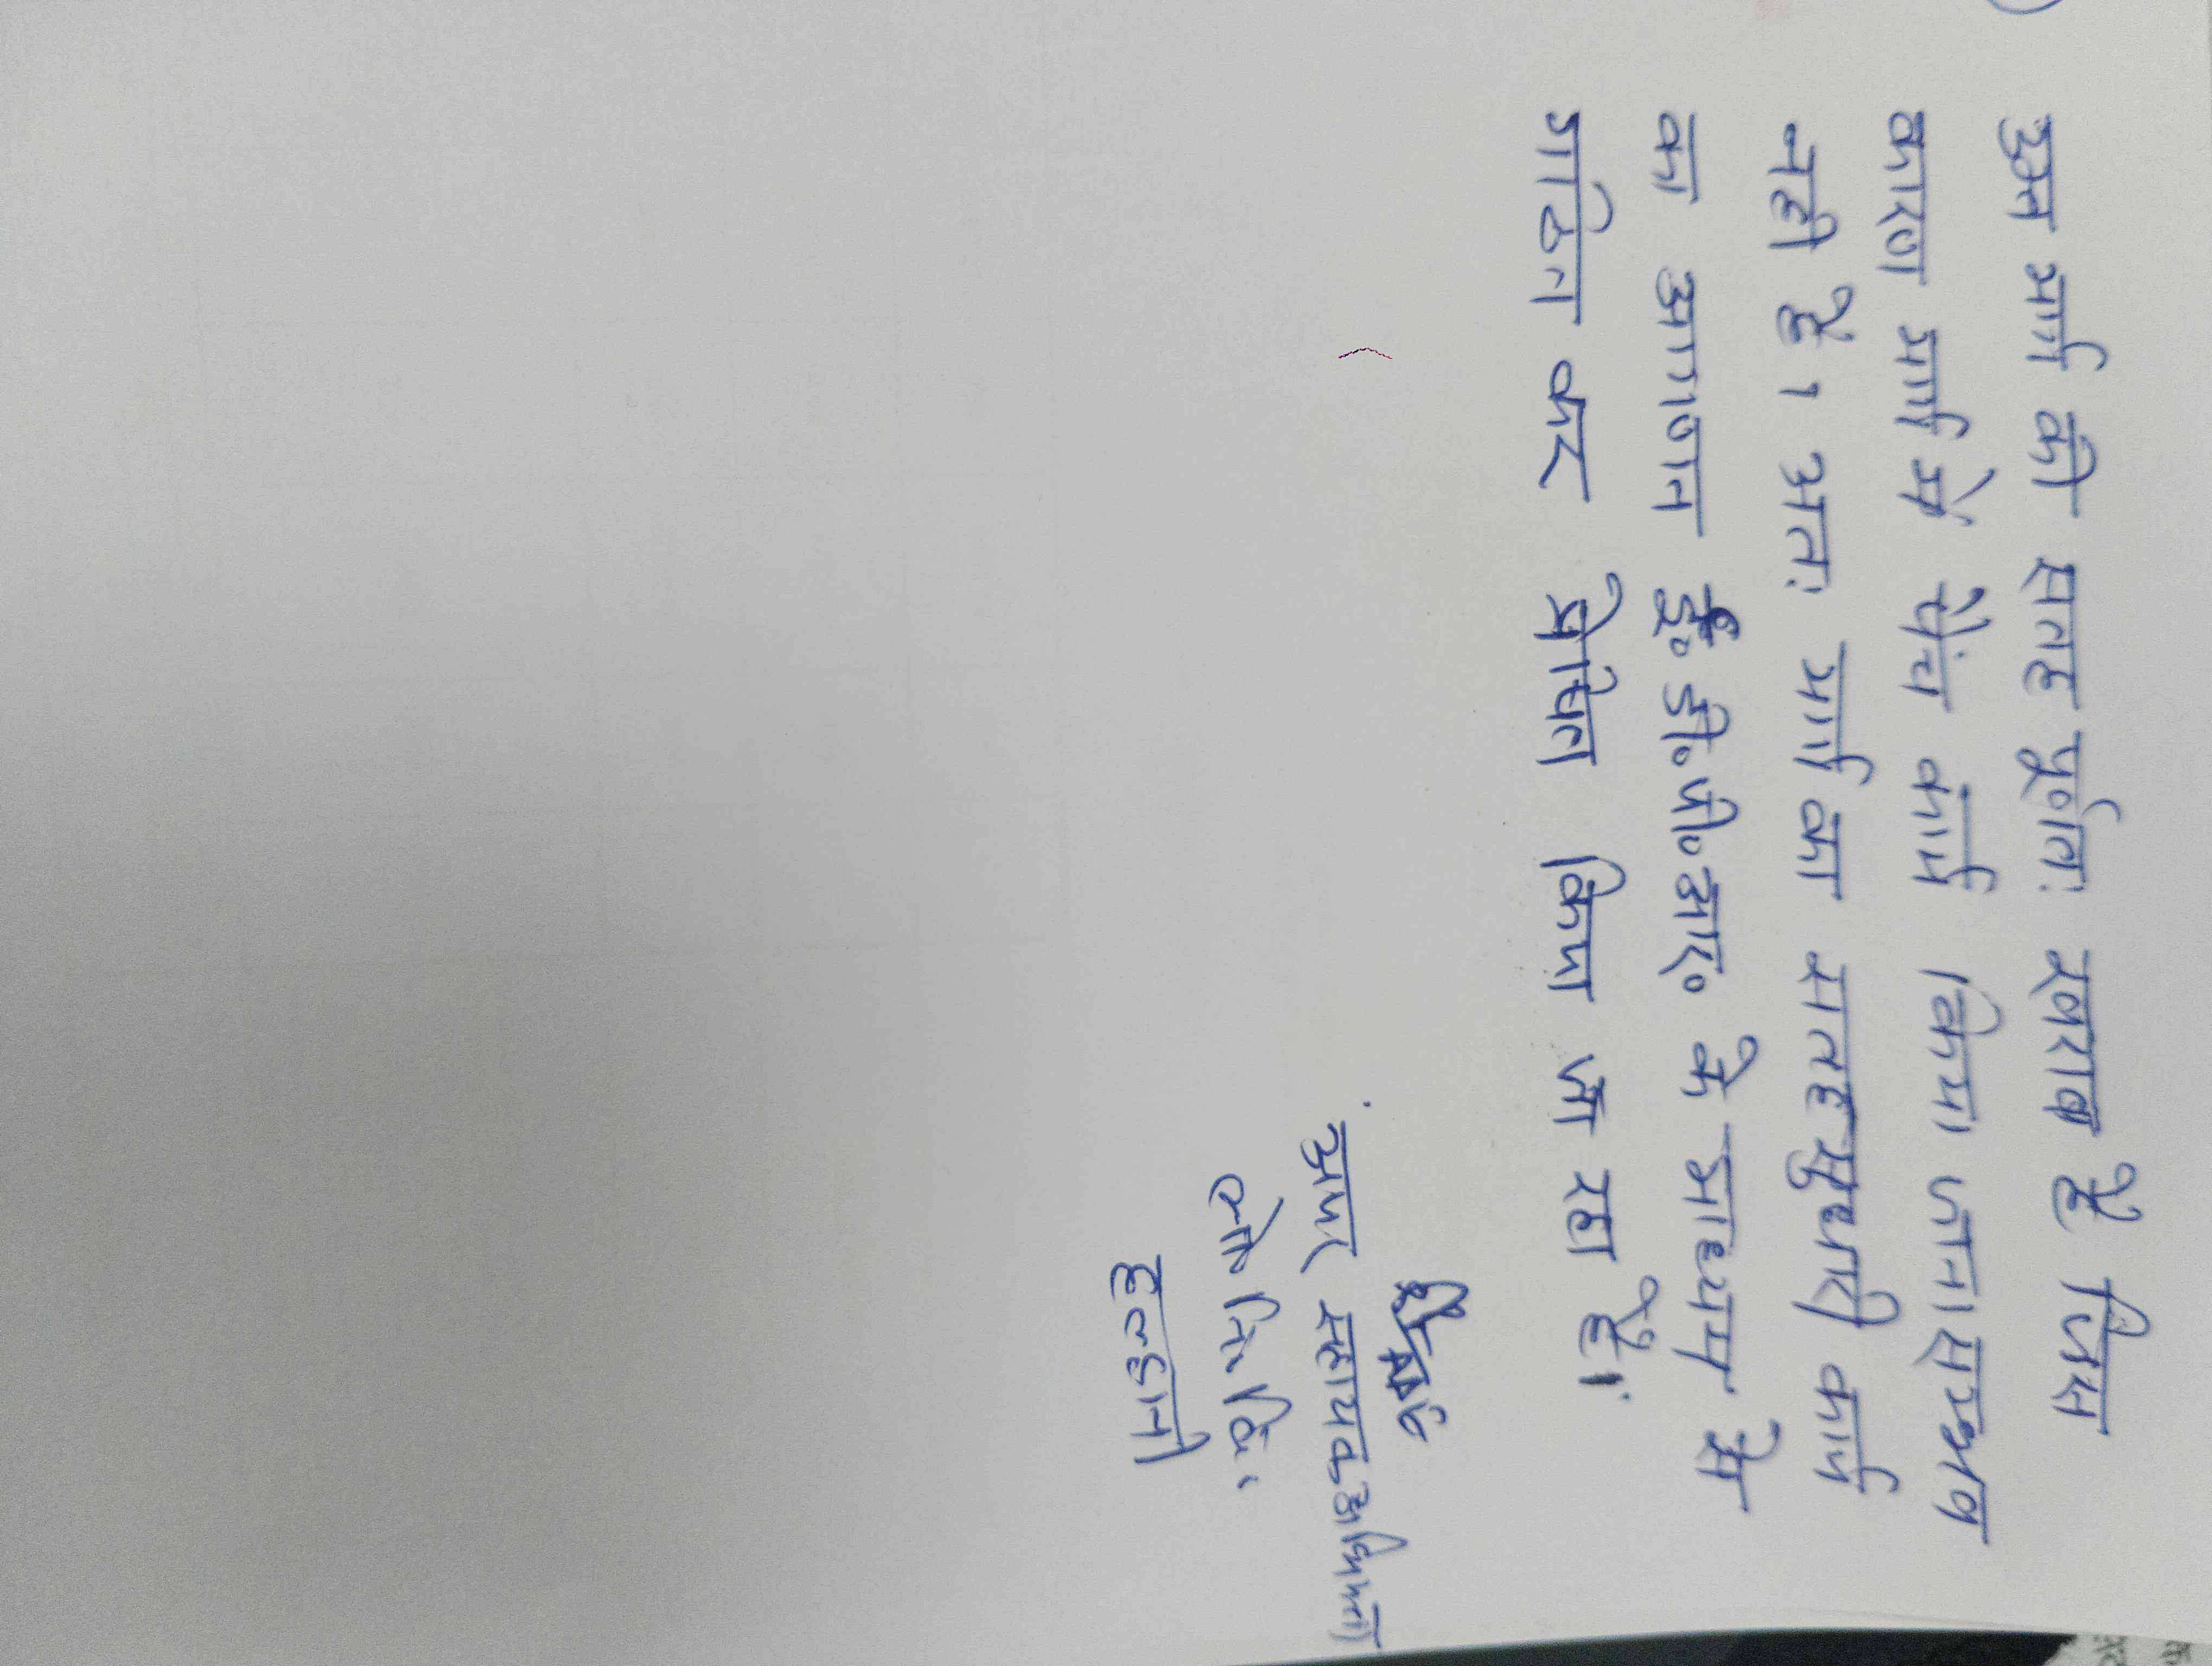 उक्त मार्ग की सतह पूर्णतः खराब है जिस
कारण मार्ग में पैच कार्य किया जाना सम्भव
नही है। अतः मार्ग का सतह सुधारी कार्य
का आगणन ई० डी० पी० आर० के माध्यम से
गठित कर प्रेषित किया जा रहा है।
अपर सहायक अभियन्ता
लो० नि० वि०
हल्द्वानी